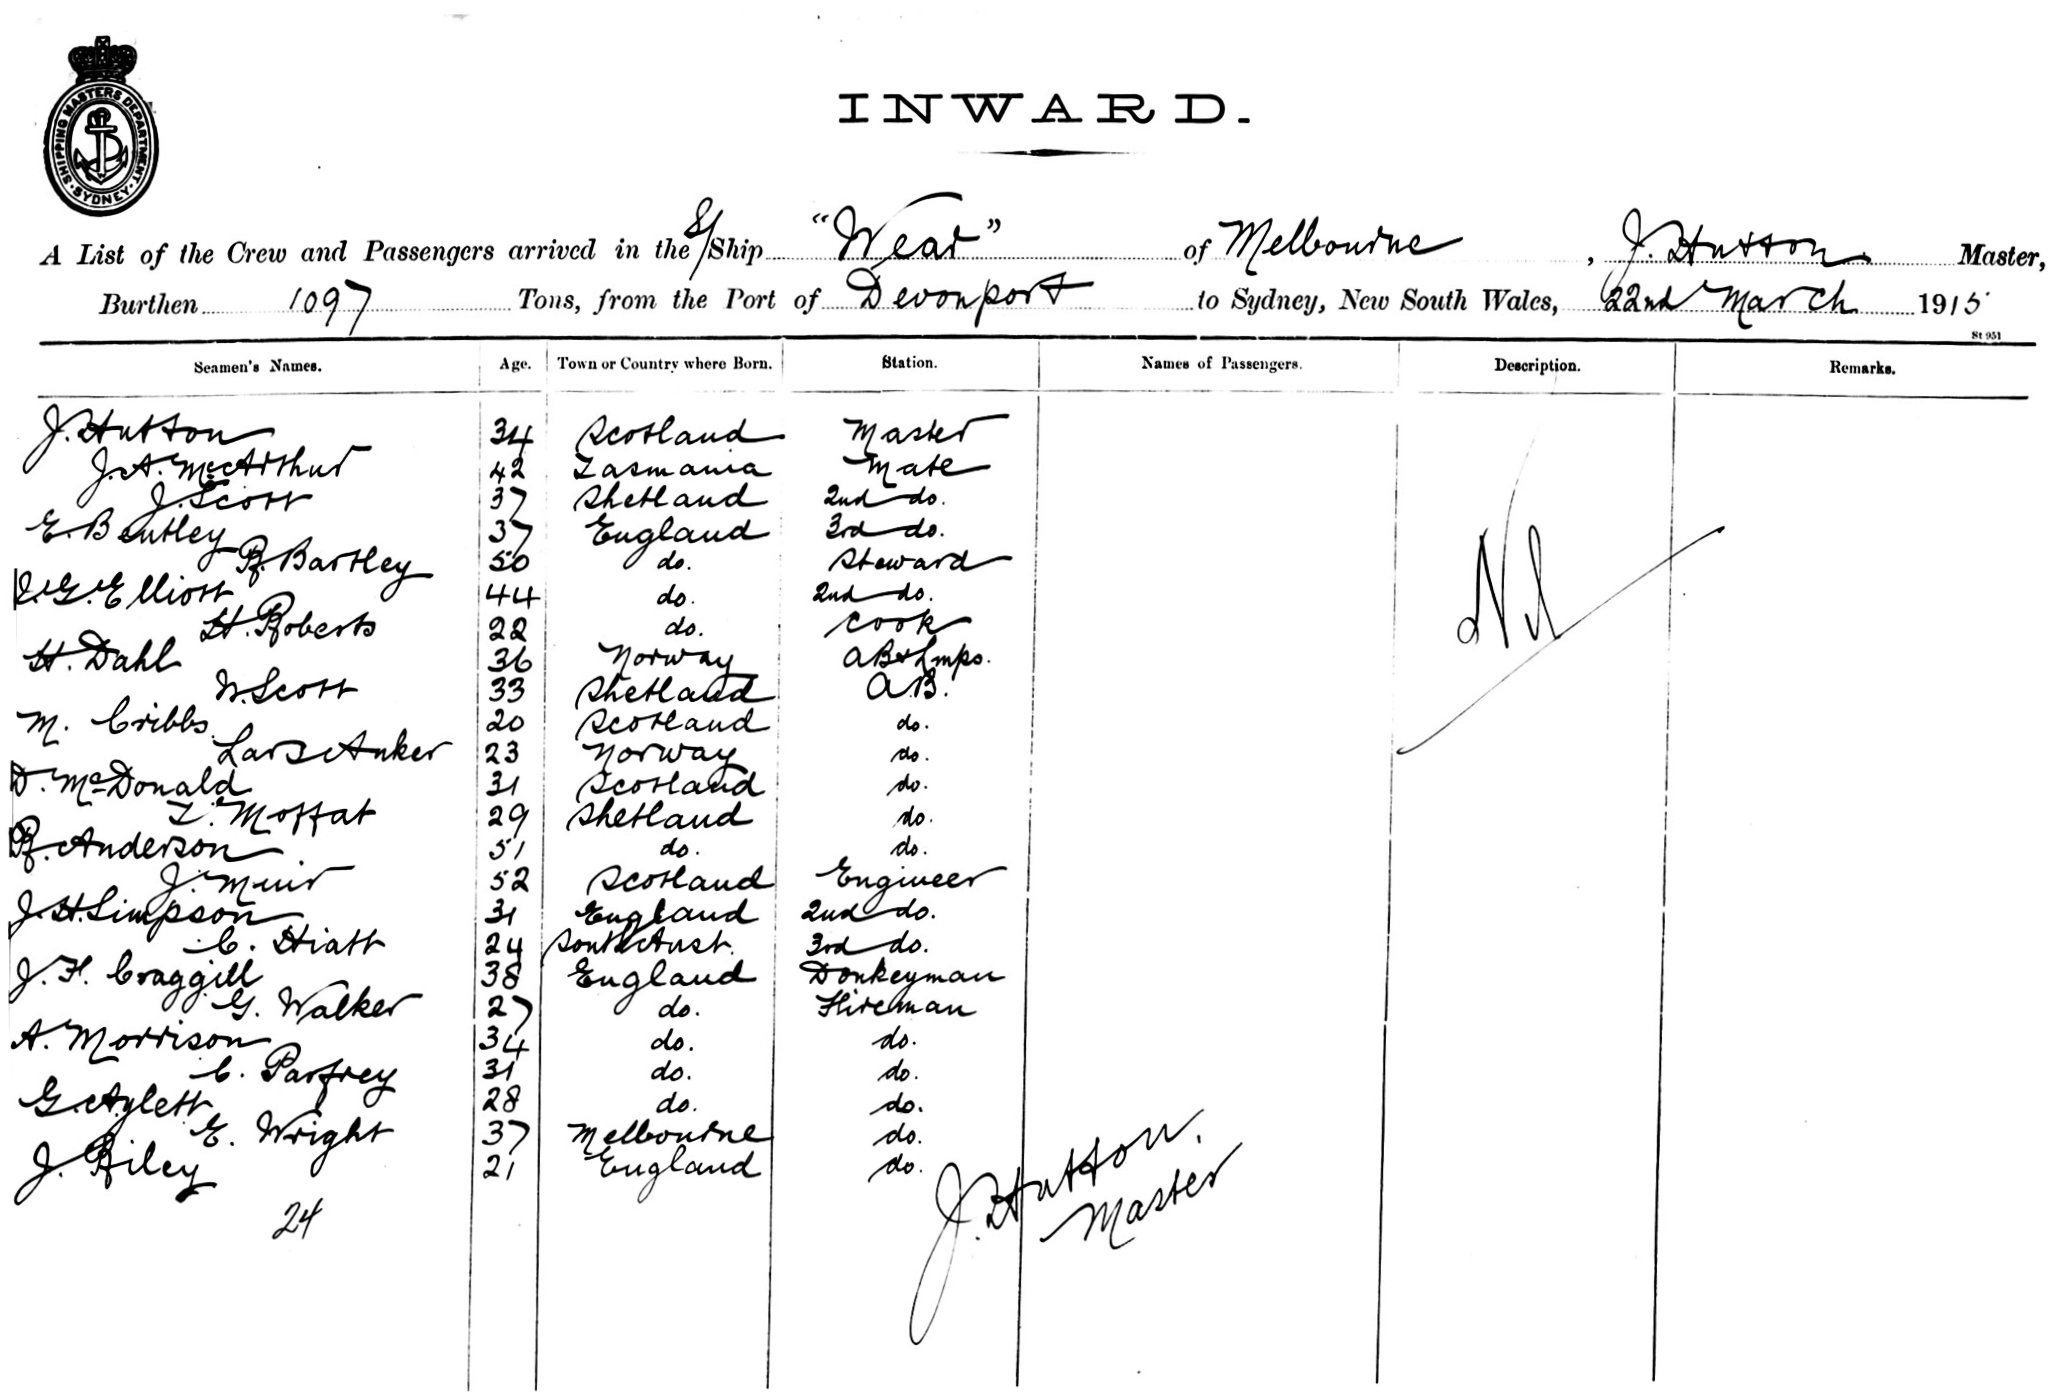 SHIPPING MASTERS DEPARTMENT. SYDNEY
INWARD.
A List of the Crew and Passengers arrived in the S/Ship "Wear" of Melbourne, J. Hutton Master,
Burthen 1097 Tons, from the Port of Devonport to Sydney, New South Wales, 22nd March 1915
St 951
Seamen's Names. Age. Town or Country where Born. Station. Names of Passengers. Description. Remarks.
J. Hutton 34 Scotland Master
J. A. McArthur 42 Tasmania Mate
J. Scott 37 Shetland 2nd do.
E. Bentley 37 England 3rd do.
R. Bartley 50 do. Steward
J. G. Elliott 44 do. 2nd do.
H. Roberts 22 do. Cook
H. Dahl 36 Norway AB & Lmps.
W. Scott 33 Shetland A.B.
M. Cribbs. 20 Scotland do.
Lars Anker 23 Norway do.
D. McDonald 31 Scotland do.
T. Moffat 29 Shetland do.
R. Anderson 51 do. do.
J. Muir 52 Scotland Engineer
J. H. Simpson 31 England 2nd do.
C. Hiatt 24 South Aust. 3rd do.
J. F. Craggill 38 England Donkeyman
G. Walker 27 do. Fireman
A. Morrison 34 do. do.
C. Parfrey 31 do. do.
G. Aylett 28 do. do.
E. Wright 37 Melbourne do.
J. Riley 21 England do.
24
Nil
J. Hutton.
Master